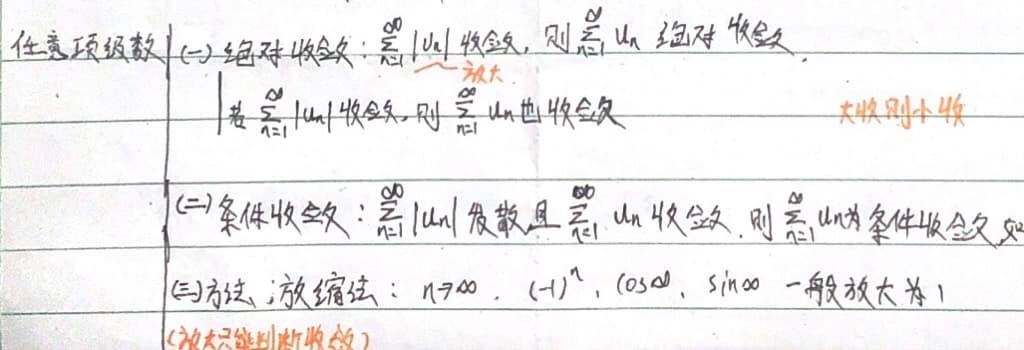 任意项级数 (一) 绝对收敛：∑_{n=1}^{∞} |Un| 收敛，则 ∑_{n=1}^{∞} Un 绝对收敛.
放大
若 ∑_{n=1}^{∞} |Un| 收敛，则 ∑_{n=1}^{∞} Un 也收敛 大收则小收
(二) 条件收敛：∑_{n=1}^{∞} |Un| 发散且 ∑_{n=1}^{∞} Un 收敛. 则 ∑_{n=1}^{∞} Un为条件收敛 如
(三) 方法：放缩法：n→∞. (-1)^n, cos∞, sin∞ 一般放大为1
(放大只能判断收敛)